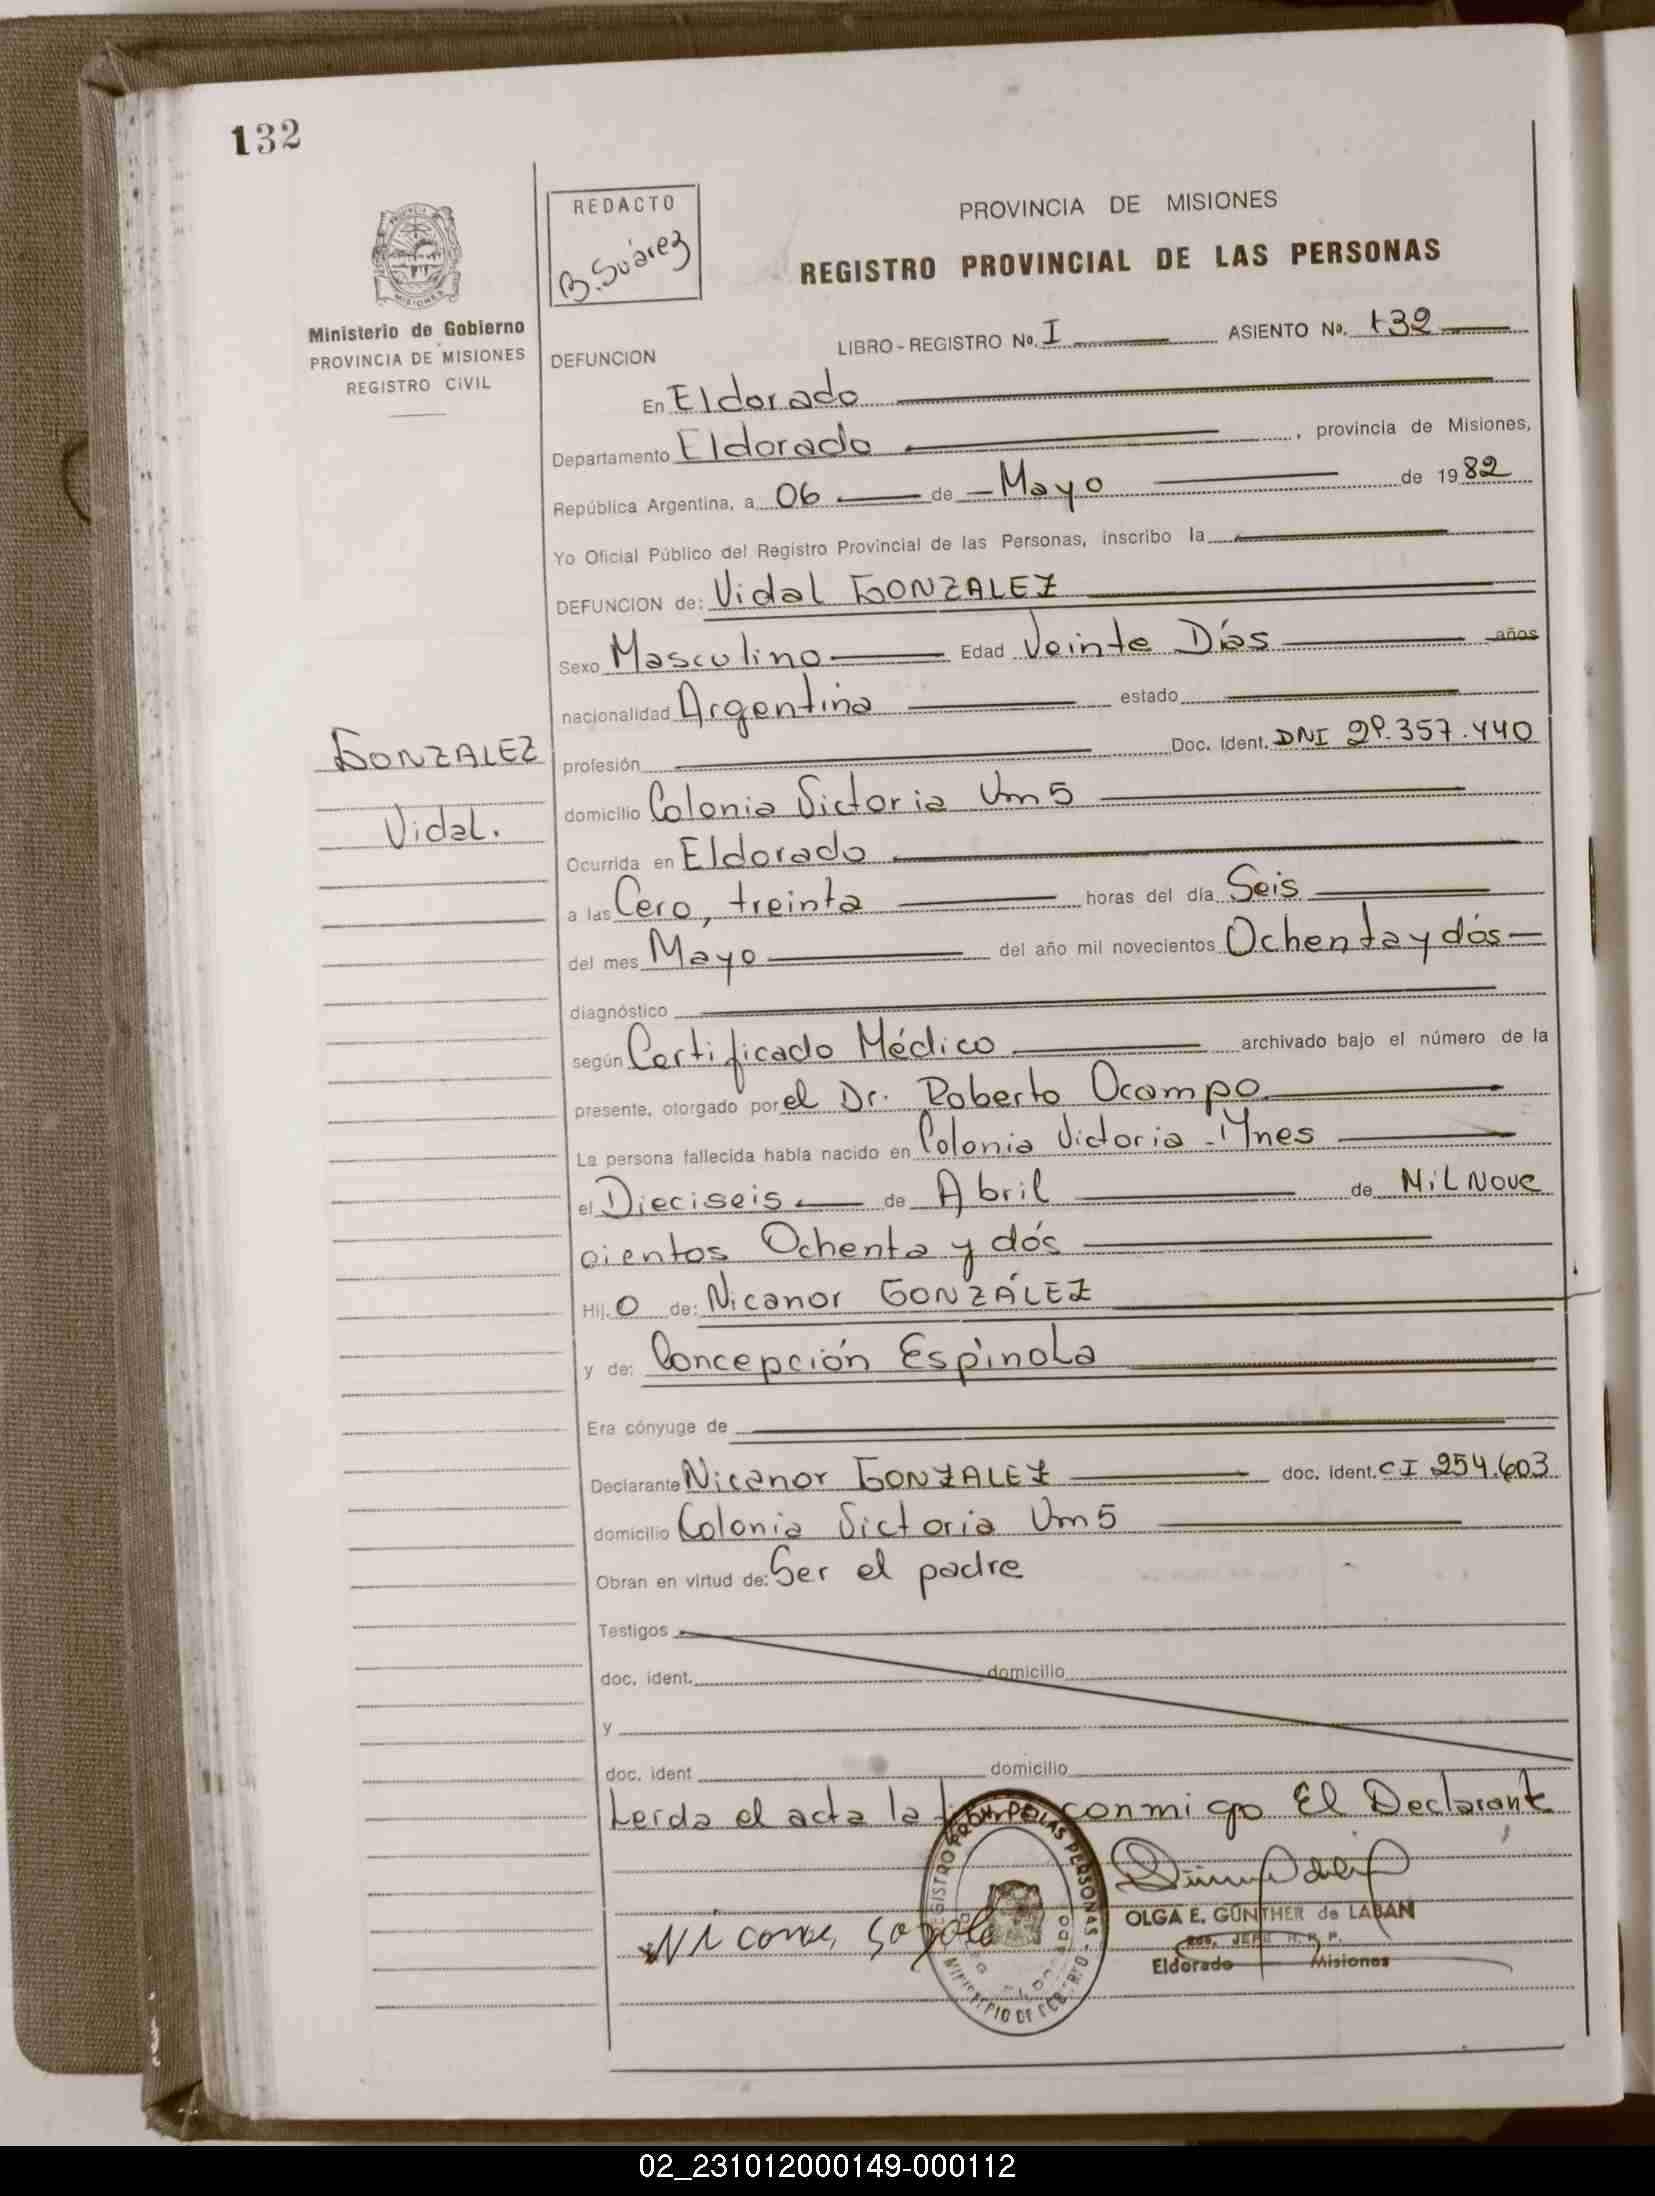 132
REDACTO
B. Suárez
PROVINCIA DE MISIONES
REGISTRO PROVINCIAL DE LAS PERSONAS
Ministerio de Gobierno
PROVINCIA DE MISIONES
REGISTRO CIVIL
DEFUNCION LIBRO-REGISTRO No. I ASIENTO No. 132
En Eldorado
Departamento Eldorado, provincia de Misiones,
República Argentina, a 06 de Mayo de 1982
Yo Oficial Público del Registro Provincial de las Personas, inscribo la
DEFUNCION de: Vidal GONZALEZ
Sexo Masculino Edad Veinte Días años
nacionalidad Argentina estado
GONZALEZ
Vidal.
profesión Doc. Ident. DNI 29.357.440
domicilio Colonia Victoria Km 5
Ocurrida en Eldorado
a las Cero, treinta horas del día Seis
del mes Mayo del año mil novecientos Ochenta y dós
diagnóstico
según Certificado Médico archivado bajo el número de la
presente, otorgado por el Dr. Roberto Ocampo
La persona fallecida había nacido en Colonia Victoria - Mnes
el Dieciseis de Abril de Mil Nove
cientos Ochenta y dós
Hij o de: Nicanor GONZÁLEZ
y de: Concepción Espinola
Era cónyuge de
Declarante Nicanor GONZALEZ doc. Ident. CI 254.603
domicilio Colonia Victoria Km 5
Obran en virtud de: Ser el padre
Testigos
doc. ident. domicilio
y
doc. ident domicilio
Leida el acta la conmigo El Declarante
REGISTRO PROV. DE LAS PERSONAS
MINISTERIO DE GOBIERNO
OLGA E. GÜNTHER de LABAN
JEFE R. P. P.
Eldorado Misiones
02_231012000149-000112